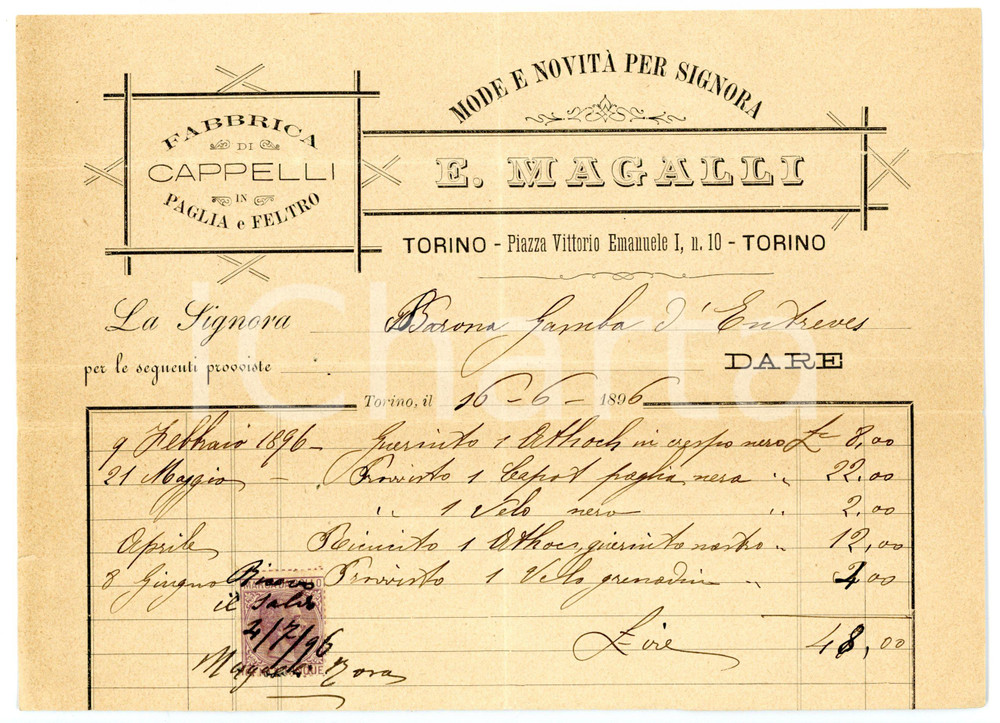 FABBRICA
DI
CAPPELLI
IN
PAGLIA e FELTRO
MODE E NOVITÀ PER SIGNORA
E. MAGALLI
TORINO - Piazza Vittorio Emanuele I, n. 10 - TORINO
La Signora Barona Gamba d'Entreves
per le seguenti provviste DARE
Torino, il 16 - 6 - 1896
9 Febbraio 1896 - Guernito 1 in crespo nero £ 8,00
21 Maggio - Provvisto 1 Capot paglia nera " 22,00
" 1 Velo nero " 2,00
Aprile 1 guernito nastro " 12,00
8 Giugno Provvisto 1 Velo grenadin " 4,00
il saldo
4/7/96
Lire 48,00
Magalli
iCharta